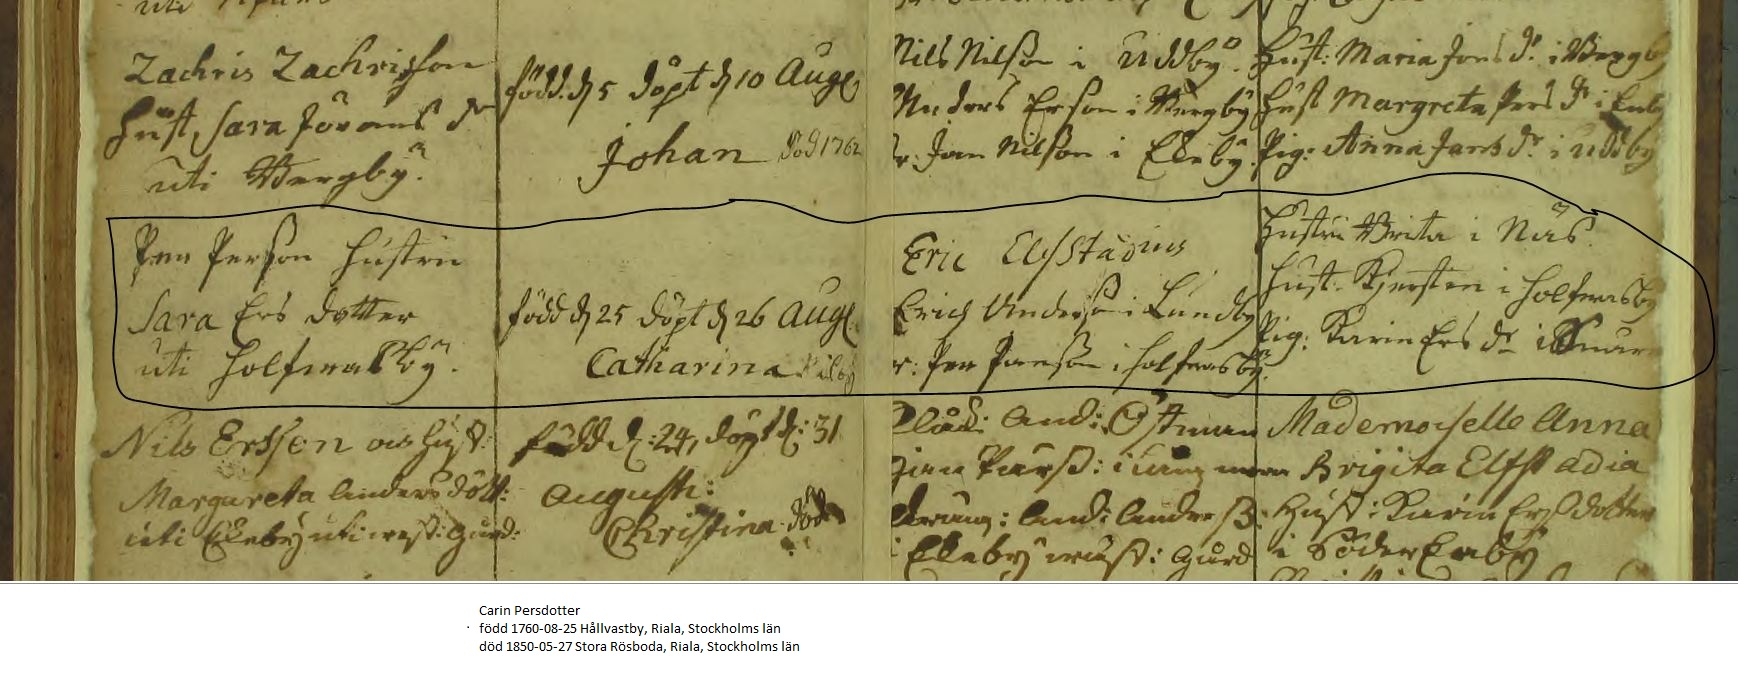 Zachris Zachrisson
Hust, Sara Jörans dr
uti Bergby.
född. d 5 döpt d 10 Aug
Johan död 1762
Nils Nilson i Uddby.
Anders Erson i Bergby
Jan Nilson i Ekeby.
Hust: Maria Jans dr. i Bergby
Hust Margreta Pers dr i
Pig: Anna Jans dr. i Uddby
Per Person Hustru
Sara Ers dotter
uti Holfwasby.
född d 25 döpt d 26 Aug
Catharina
Eric Elfstadius
Erich Anderson i Lundby
Per Janson i Holfwasby.
Hustru Brita i Näs.
Hust. Kjersten i Holfwasby
Pig: Karin Ers dr i
Nils Ersson och Hust:
Margareta Anders dott:
uti Ekeby uti wäst: Gård:
född d: 24, döpt d: 31
Augusti:
Christina död
And: Östman
And: Anders
i Ekeby wäst: Gård
Mademoiselle Anna
Brigita Elfstadia
Hust: Karin Ersdotter
i Söder Enby
Carin Persdotter
född 1760-08-25 Hållvastby, Riala, Stockholms län
död 1850-05-27 Stora Rösboda, Riala, Stockholms län